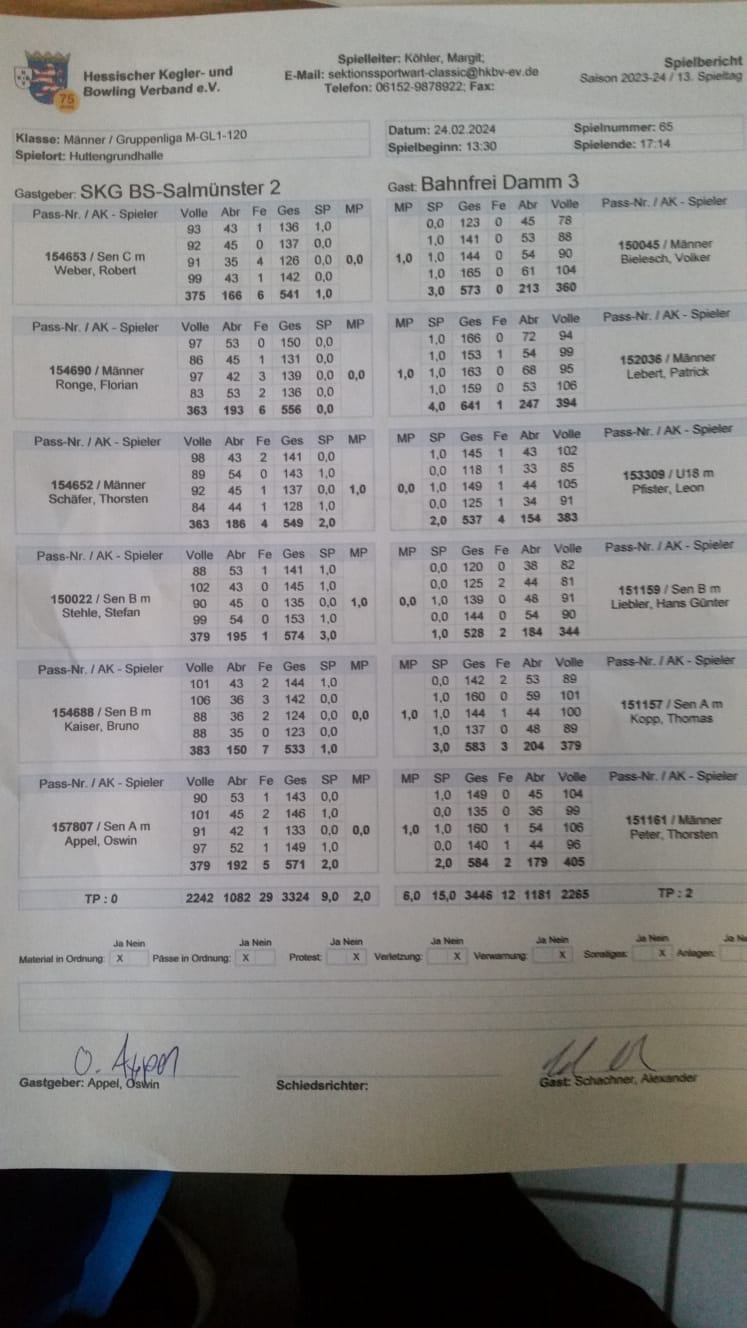 Hessischer Kegler- und
Bowling Verband e.V.
75
Spielleiter: Köhler, Margit;
E-Mail: sektionssportwart-classic@hkbv-ev.de
Telefon: 06152-9878922; Fax:
Spielbericht
Saison 2023-24 / 13. Spieltag
Klasse: Männer / Gruppenliga M-GL1-120
Spielort: Huttengrundhalle
Datum: 24.02.2024 Spielnummer: 65
Spielbeginn: 13:30 Spielende: 17:14
Gastgeber: SKG BS-Salmünster 2 Gast: Bahnfrei Damm 3
Pass-Nr. / AK - Spieler Volle Abr Fe Ges SP MP MP SP Ges Fe Abr Volle Pass-Nr. / AK - Spieler
93 43 1 136 1,0 0,0 123 0 45 78
92 45 0 137 0,0 1,0 141 0 53 88
154653 / Sen C m 91 35 4 126 0,0 0,0 1,0 1,0 144 0 54 90 150045 / Männer
Weber, Robert 99 43 1 142 0,0 1,0 165 0 61 104 Bielesch, Volker
375 166 6 541 1,0 3,0 573 0 213 360
Pass-Nr. / AK - Spieler Volle Abr Fe Ges SP MP MP SP Ges Fe Abr Volle Pass-Nr. / AK - Spieler
97 53 0 150 0,0 1,0 166 0 72 94
86 45 1 131 0,0 1,0 153 1 54 99
154690 / Männer 97 42 3 139 0,0 0,0 1,0 1,0 163 0 68 95 152036 / Männer
Ronge, Florian 83 53 2 136 0,0 1,0 159 0 53 106 Lebert, Patrick
363 193 6 556 0,0 4,0 641 1 247 394
Pass-Nr. / AK - Spieler Volle Abr Fe Ges SP MP MP SP Ges Fe Abr Volle Pass-Nr. / AK - Spieler
98 43 2 141 0,0 1,0 145 1 43 102
89 54 0 143 1,0 0,0 118 1 33 85
154652 / Männer 92 45 1 137 0,0 1,0 0,0 1,0 149 1 44 105 153309 / U18 m
Schäfer, Thorsten 84 44 1 128 1,0 0,0 125 1 34 91 Pfister, Leon
363 186 4 549 2,0 2,0 537 4 154 383
Pass-Nr. / AK - Spieler Volle Abr Fe Ges SP MP MP SP Ges Fe Abr Volle Pass-Nr. / AK - Spieler
88 53 1 141 1,0 0,0 120 0 38 82
102 43 0 145 1,0 0,0 125 2 44 81
150022 / Sen B m 90 45 0 135 0,0 1,0 0,0 1,0 139 0 48 91 151159 / Sen B m
Stehle, Stefan 99 54 0 153 1,0 0,0 144 0 54 90 Liebler, Hans Günter
379 195 1 574 3,0 1,0 528 2 184 344
Pass-Nr. / AK - Spieler Volle Abr Fe Ges SP MP MP SP Ges Fe Abr Volle Pass-Nr. / AK - Spieler
101 43 2 144 1,0 0,0 142 2 53 89
106 36 3 142 0,0 1,0 160 0 59 101
154688 / Sen B m 88 36 2 124 0,0 0,0 1,0 1,0 144 1 44 100 151157 / Sen A m
Kaiser, Bruno 88 35 0 123 0,0 1,0 137 0 48 89 Kopp, Thomas
383 150 7 533 1,0 3,0 583 3 204 379
Pass-Nr. / AK - Spieler Volle Abr Fe Ges SP MP MP SP Ges Fe Abr Volle Pass-Nr. / AK - Spieler
90 53 1 143 0,0 1,0 149 0 45 104
101 45 2 146 1,0 0,0 135 0 36 99
157807 / Sen A m 91 42 1 133 0,0 0,0 1,0 1,0 160 1 54 106 151161 / Männer
Appel, Oswin 97 52 1 149 1,0 0,0 140 1 44 96 Peter, Thorsten
379 192 5 571 2,0 2,0 584 2 179 405
TP : 0 2242 1082 29 3324 9,0 2,0 6,0 15,0 3446 12 1181 2265 TP : 2
Ja Nein Ja Nein Ja Nein Ja Nein Ja Nein Ja Nein Ja
Material in Ordnung: X Pässe in Ordnung: X Protest: X Verletzung: X Verwarnung: X Sonstiges: X Anlagen:
O. Appel
Gastgeber: Appel, Oswin Schiedsrichter: Gast: Schachner, Alexander